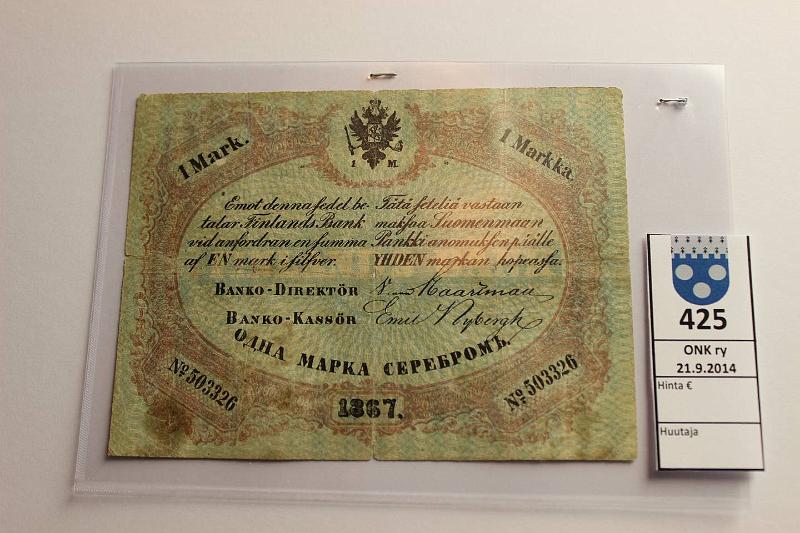 1 Mark.
1 Markka.
1 M.
Emot denna sedel be-
talar Finlands Bank
vid anfordran en summa
af EN mark i silfver.
Tätä seteliä vastaan
maksaa Suomenmaan
Pankki anomuksen päälle
YHDEN markan hopeassa.
BANKO-DIREKTÖR
BANKO-KASSÖR Emil Nybergh
ОДНА МАРКА СЕРЕБРОМЪ.
No. 503326
No. 503326
1867.
425
ONK ry
21.9.2014
Hinta €
Huutaja